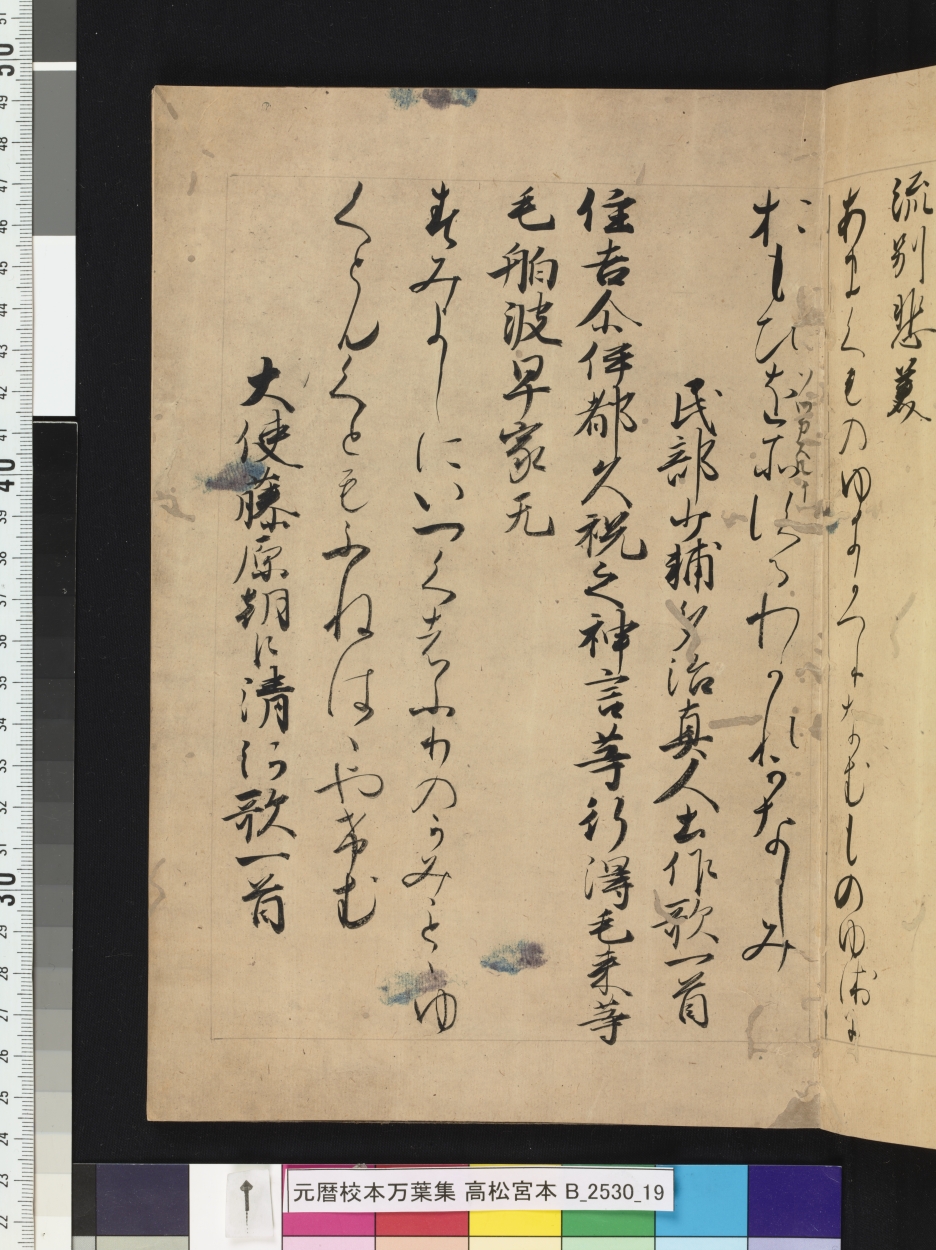 流別悲美
あまくものゆきかへりなむものゆゑに
おもひそわれするわかれかなしみ
民部少輔多治真人土作歌一首
住吉尓伊都久祝之神言等行得毛来等
毛舶波早家无
すみよしにいつくはふりのかみことゝゆ
くともくともふねはゝやけむ
大使藤原朝臣清河歌一首
元暦校本万葉集 高松宮本 B_2530_19